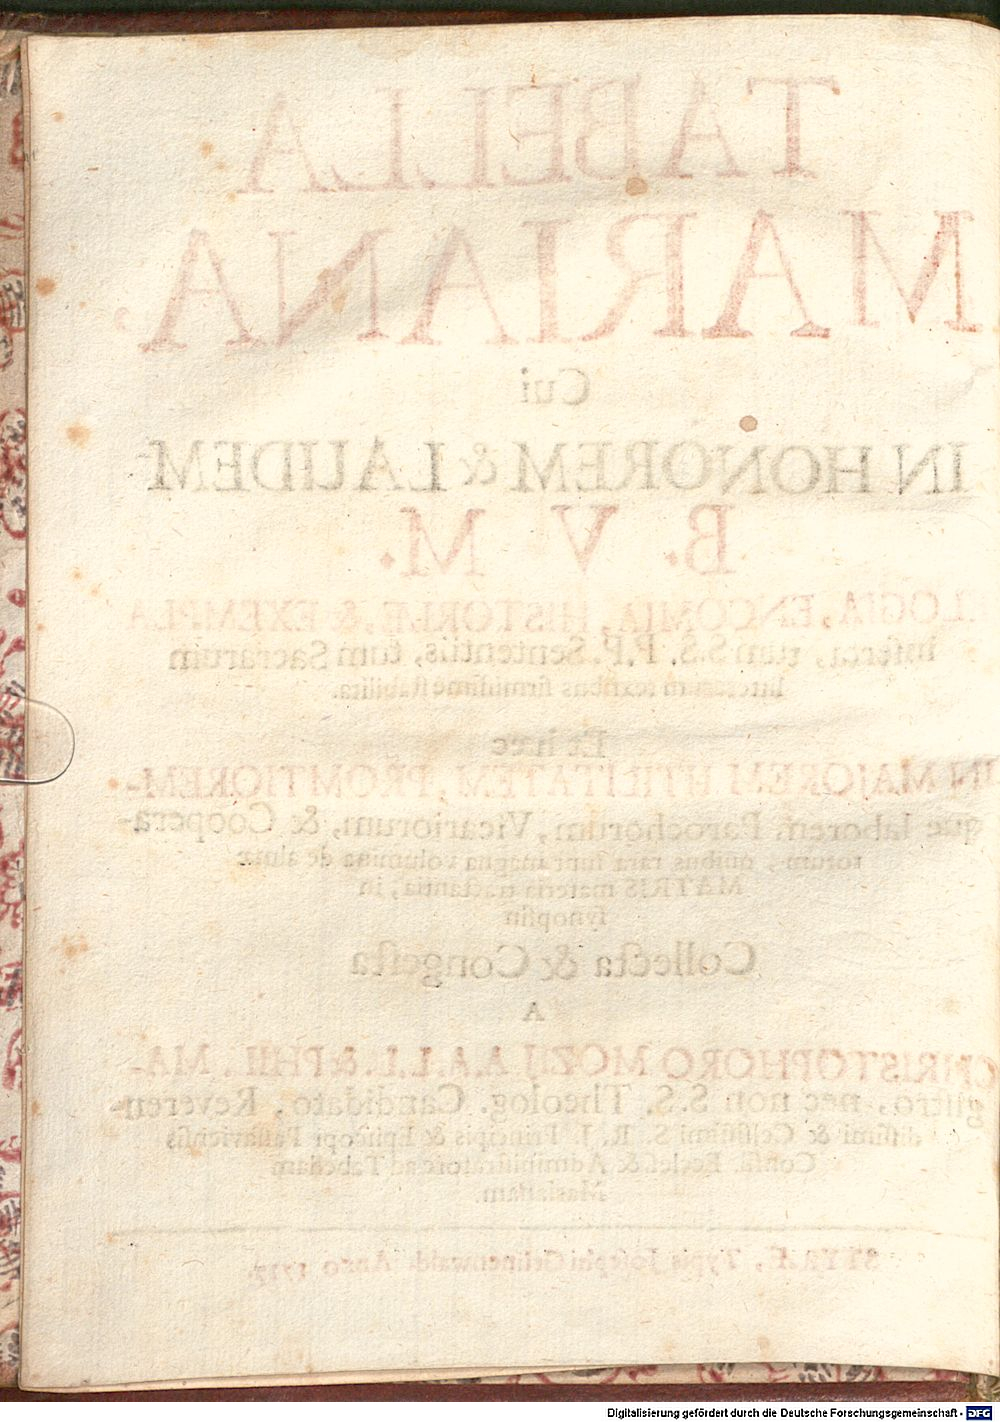 TABELLA
MARIANA,
Cui
IN HONOREM & LAUDEM
B. V M.
ELOGIA, ENCOMIA, HISTORIÆ, & EXEMPLA
inserta, tum S.S. P.P. Sententiis, tum Sacrarum
litterarum textibus firmissime stabilita.
Et hæc
IN MAJOREM UTILITATEM, PROMTIOREM-
que laborem Parochorum, Vicariorum, & Coopera-
torum, quibus rara sunt magna volumina de alma
MATRIS materia tractantia, in
synopsin
Collecta & Congesta
A
CHRISTOPHORO MOZIJ A.A.L.L. & PHIL. MA-
gistro, nec non S.S. Theolog. Candidato, Reveren-
dissimi & Celsissimi S. R. J. Principis & Episcopi Passaviensis
Consil. Eccles. & Administratore ad Tabellam
STYRÆ, Typis Josephi Grünenwald Anno
Digitalisierung gefördert durch die Deutsche Forschungsgemeinschaft - DFG